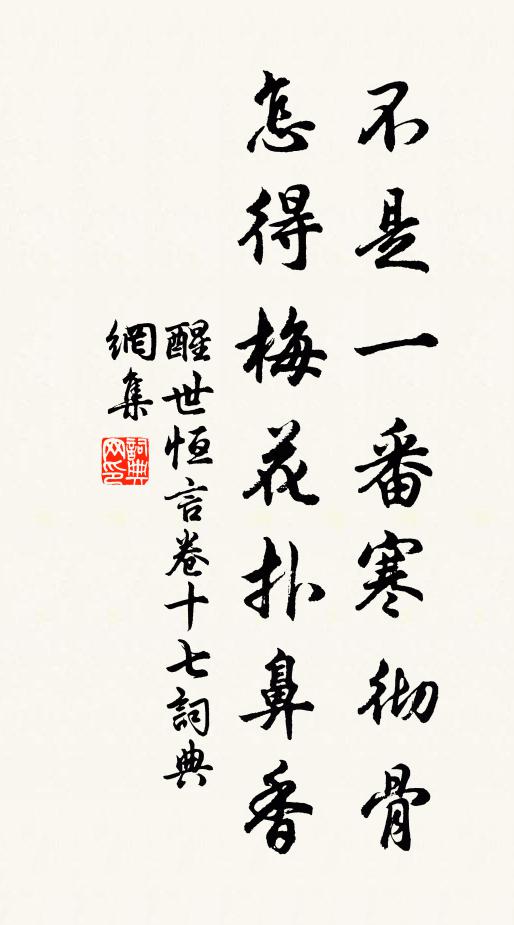 不是一番寒彻骨
怎得梅花扑鼻香
醒世恒言卷十七詞典
網集
詞典網印